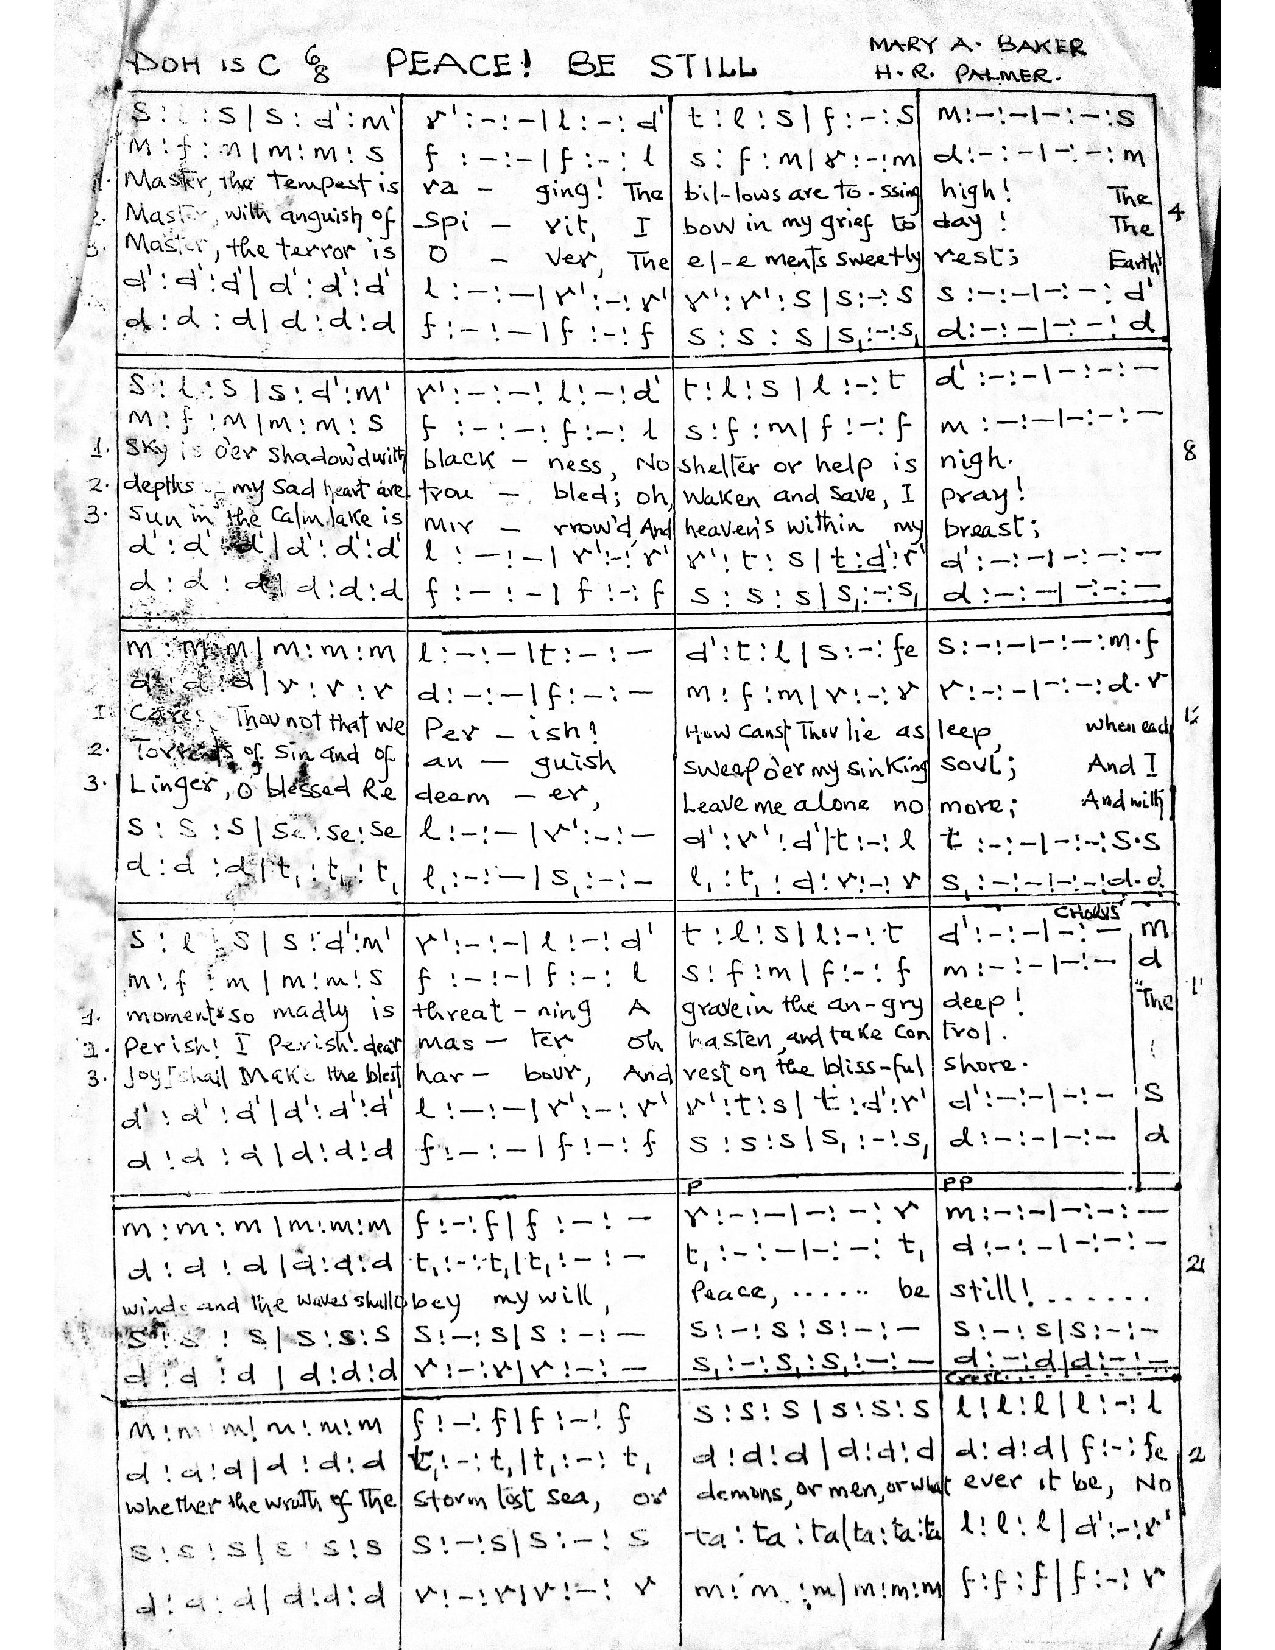 DOH IS C 6/8 PEACE! BE STILL MARY A. BAKER
H. R. PALMER.
s : l : s | s : d' : m' r' : – : – | l : – : d' t : l : s | f : – : s m : – : – | – : – : s
m : f : m | m : m : s f : – : – | f : – : l s : f : m | r : – : m d : – : – | – : – : m
1. Master, the tempest is ra – ging! The bil-lows are to-ssing high! The
2. Master, with anguish of spi – rit, I bow in my grief to day! The 4
3. Master, the terror is O – ver, The el-e ments sweetly rest; Earth's
d' : d' : d' | d' : d' : d' l : – : – | r' : – : r' r' : r' : s | s : – : s s : – : – | – : – : d'
d : d : d | d : d : d f : – : – | f : – : f s : s : s | s, : – : s, d : – : – | – : – : d
s : l : s | s : d' : m' r' : – : – : l : – : d' t : l : s | l : – : t d' : – : – | – : – : –
m : f : m | m : m : s f : – : – : f : – : l s : f : m | f : – : f m : – : – | – : – : –
1. Sky is o'er shadow'd with black – ness, No shelter or help is nigh. 8
2. depths my sad heart are trou – bled; oh, waken and save, I pray!
3. Sun in the calm lake is mir – rrow'd And heaven's within my breast;
d' : d' : d' | d' : d' : d' l : – : – | r' : – : r' r' : t : s | t : d' : r' d' : – : – | – : – : –
d : d : d | d : d : d f : – : – | f : – : f s : s : s | s, : – : s, d : – : – | – : – : –
m : m : m | m : m : m l : – : – | t : – : – d' : t : l | s : – : fe s : – : – | – : – : m.f
d : d : d | r : r : r d : – : – | f : – : – m : f : m | r : – : r r : – : – | – : – : d.r
1. Cares Thou not that we Per – ish! How canst Thou lie as leep, when each
2. Torrents of sin and of an – guish sweep o'er my sinking soul; And I
3. Linger, O blessed Re deem – er, Leave me alone no more; And with
s : s : s | se : se : se l : – : – | r' : – : – d' : r' : d' | t : – : l t : – : – | – : – : s.s
d : d : d | t, : t, : t, l, : – : – | s, : – : – l, : t, : d : r : – : r s, : – : – | – : – : d.d
CHORUS
s : l : s | s : d' : m' r' : – : – | l : – : d' t : l : s | l : – : t d' : – : – | – : – m
m : f : m | m : m : s f : – : – | f : – : l s : f : m | f : – : f m : – : – | – : – d
1. moment so madly is threat – ning A grave in the an-gry deep! "The
Perish! I Perish! dear mas – ter oh hasten, and take con trol.
3. Joy I shall Make the blest har – bour, And rest on the bliss-ful shore.
d' : d' : d' | d' : d' : d' l : – : – | r' : – : r' r' : t : s | t : d' : r' d' : – : – | – : – s
d : d : d | d : d : d f : – : – | f : – : f s : s : s | s, : – : s, d : – : – | – : – d
p pp
m : m : m | m : m : m f : – : f | f : – : – r : – : – | – : – : r m : – : – | – : – : –
d : d : d | d : d : d t, : – : t, | t, : – : – t, : – : – | – : – : t, d : – : – | – : – : –
winds and the waves shall obey my will, Peace, ...... be still! .......
s : s : s | s : s : s s : – : s | s : – : – s : – : s : s : – : – s : – : s | s : – : –
d : d : d | d : d : d r : – : r | r : – : – s, : – : s, : s, : – : – d : – : d | d : – : –
Cresc.
m : m : m : m : m : m f : – : f | f : – : f s : s : s | s : s : s l : l : l | l : – : l
d : d : d | d : d : d t, : – : t, | t, : – : t, d : d : d | d : d : d d : d : d | f : – : fe
whether the wrath of the storm tost sea, or demons, or men, or what ever it be, No
s : s : s | s : s : s s : – : s | s : – : s ta : ta : ta | ta : ta : ta l : l : l | d' : – : r'
d : d : d | d : d : d r : – : r | r : – : r m : m : m | m : m : m f : f : f | f : – : r